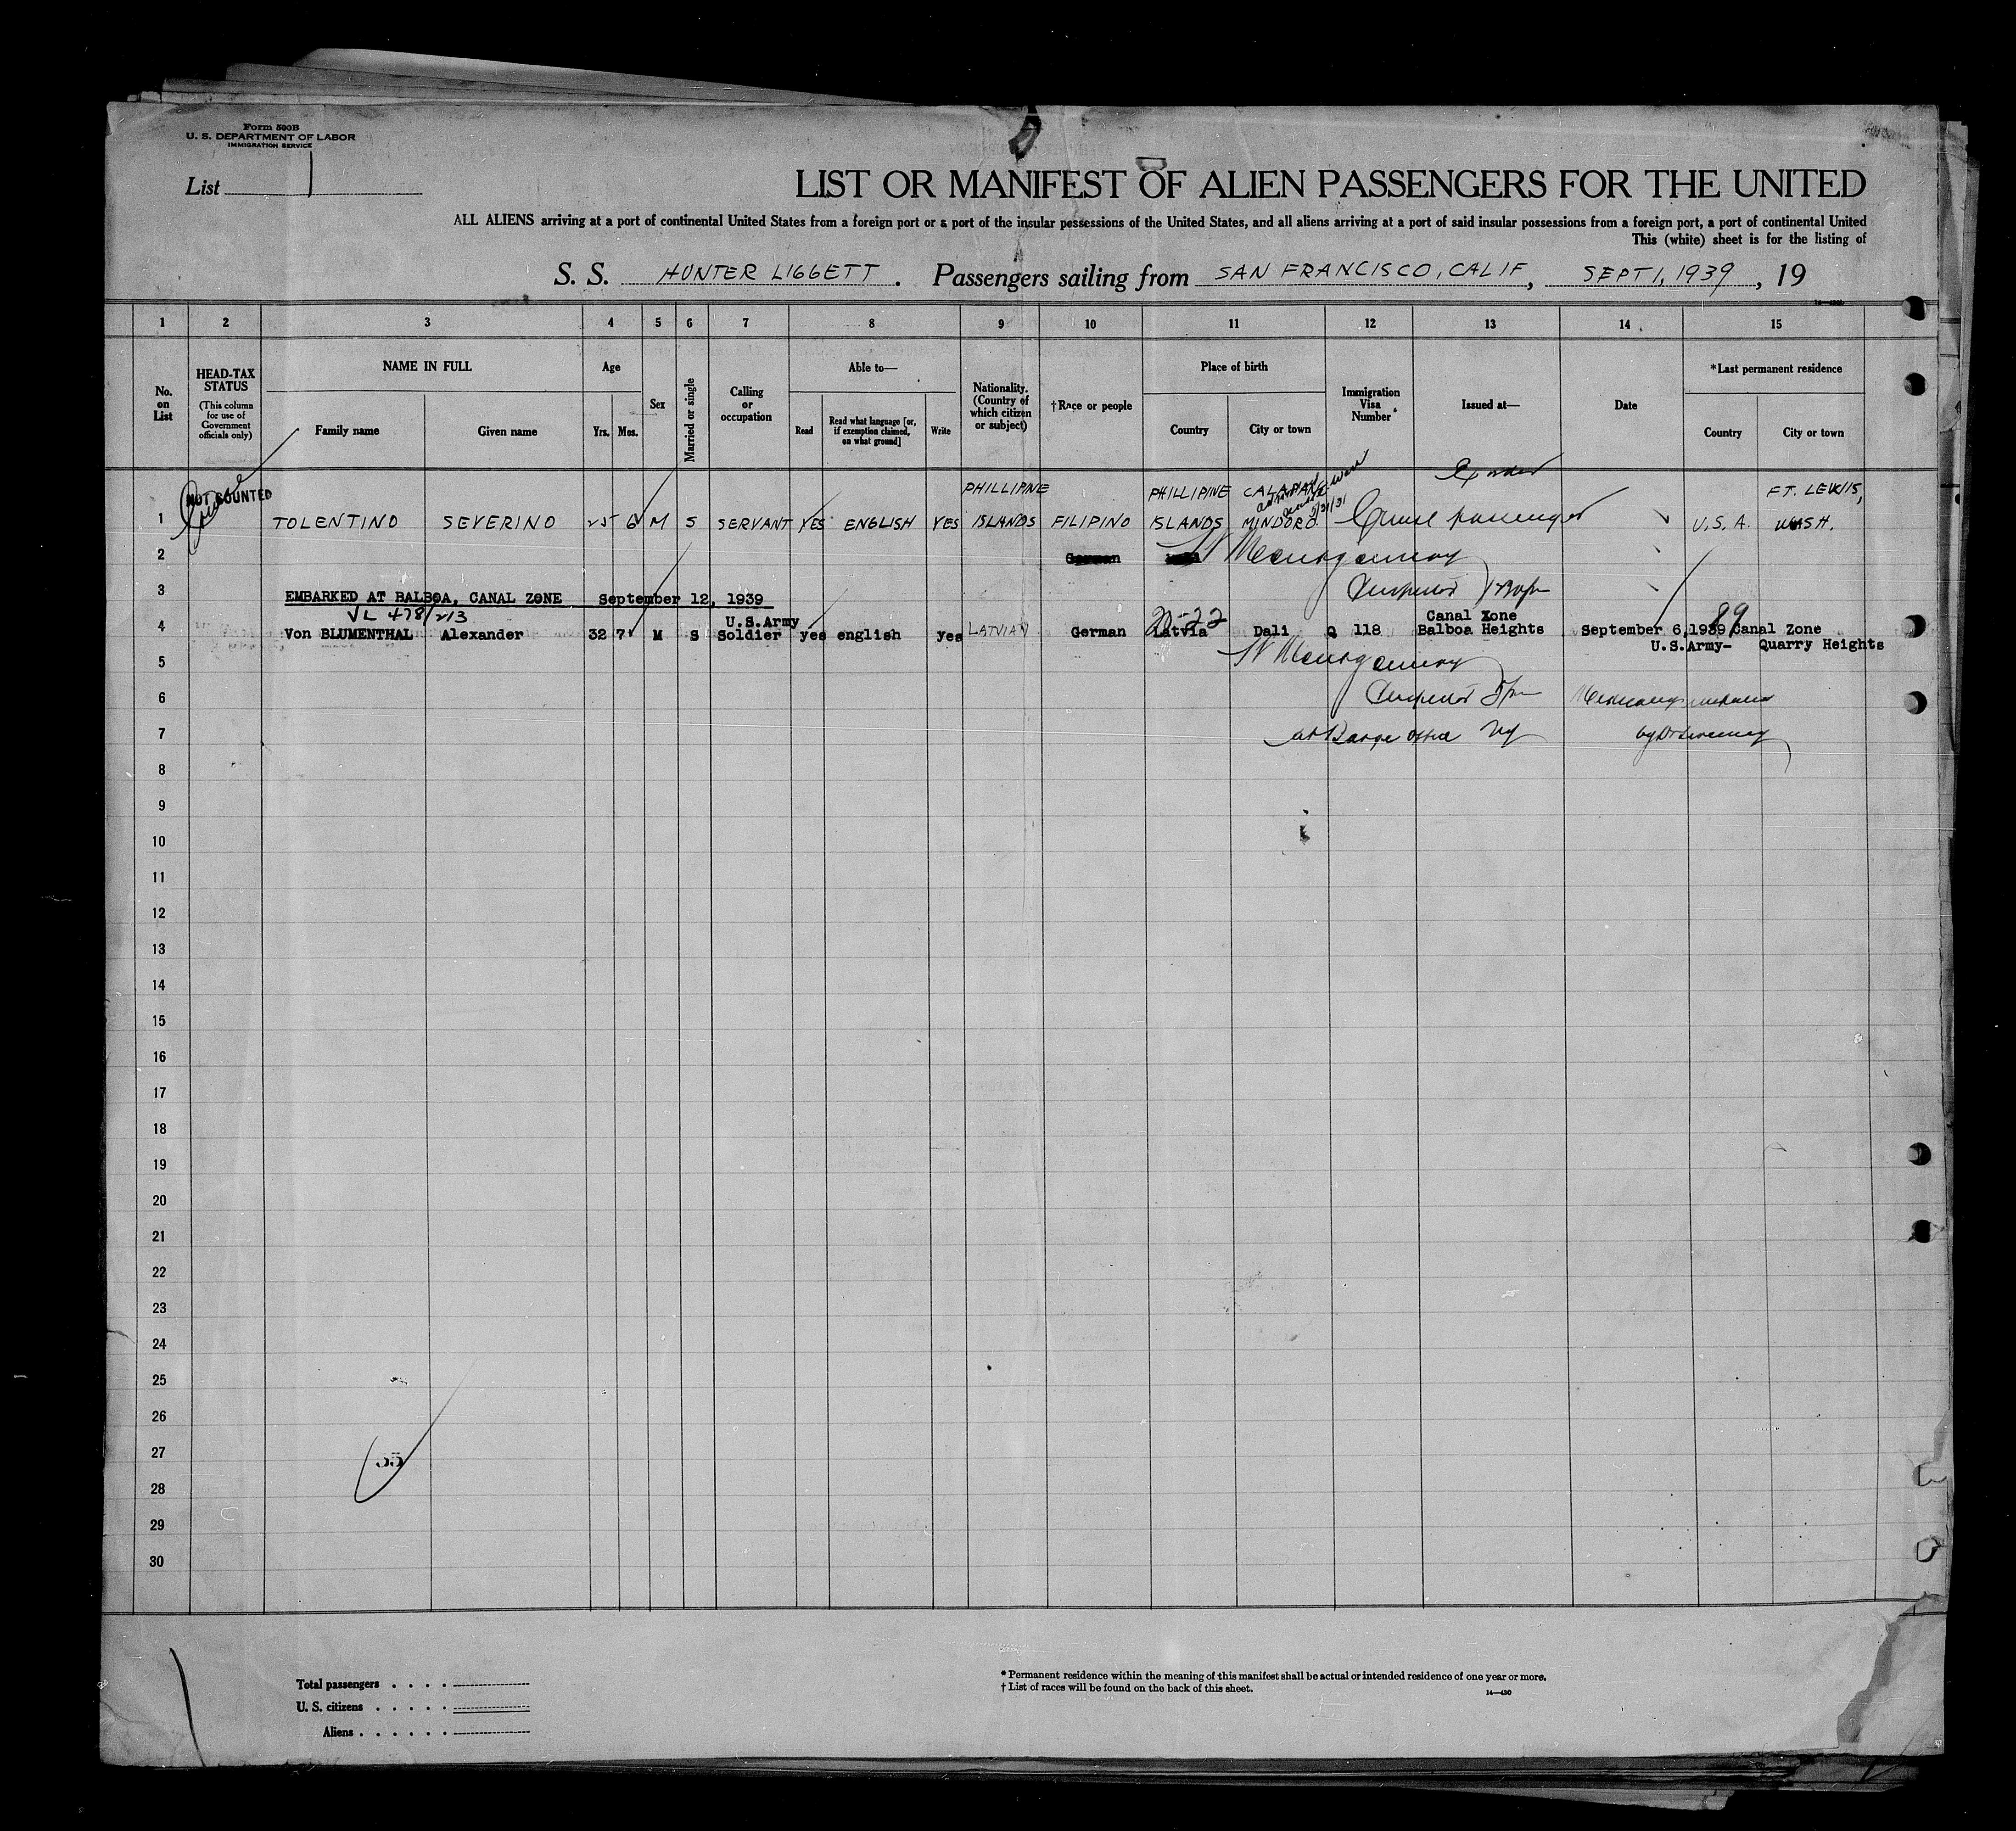 Form 500B
U. S. DEPARTMENT OF LABOR
IMMIGRATION SERVICE
List 1
LIST OR MANIFEST OF ALIEN PASSENGERS FOR THE UNITED
ALL ALIENS arriving at a port of continental United States from a foreign port or a port of the insular possessions of the United States, and all aliens arriving at a port of said insular possessions from a foreign port, a port of continental United
This (white) sheet is for the listing of
S. S. HUNTER LIGGETT. Passengers sailing from SAN FRANCISCO, CALIF, SEPT 1, 1939, 19
1 2 3 4 5 6 7 8 9 10 11 12 13 14 15
No. on List
HEAD-TAX STATUS
(This column for use of Government officials only)
NAME IN FULL
Family name Given name
Age
Yrs. Mos.
Sex
Married or single
Calling or occupation
Able to—
Read Read what language [or, if exemption claimed, on what ground] Write
Nationality. (Country of which citizen or subject)
†Race or people
Place of birth
Country City or town
Immigration Visa Number
Issued at—
Date
*Last permanent residence
Country City or town
NOT COUNTED
PHILLIPINE PHILLIPINE CALAPAN FT. LEWIS,
1 TOLENTINO SEVERINO 25 6 M S SERVANT YES ENGLISH YES ISLANDS FILIPINO ISLANDS MINDORO Cruise passenger U.S.A. WASH.
2 German Montgomery
3 EMBARKED AT BALBOA, CANAL ZONE September 12, 1939 Inspector
VL 478/213 U.S.Army 20-22 Canal Zone 99
4 Von BLUMENTHAL Alexander 32 7 M S Soldier yes english yes LATVIAN German Latvia Dali Q 118 Balboa Heights September 6,1939 Canal Zone
U.S.Army- Quarry Heights
5 Montgomery
6 Inspector
7 at Barge Office NY
8
9
10
11
12
13
14
15
16
17
18
19
20
21
22
23
24
25
26
27 35
28
29
30
Total passengers . . . .
U. S. citizens . . . . .
Aliens . . . . . .
* Permanent residence within the meaning of this manifest shall be actual or intended residence of one year or more.
† List of races will be found on the back of this sheet.
14—430